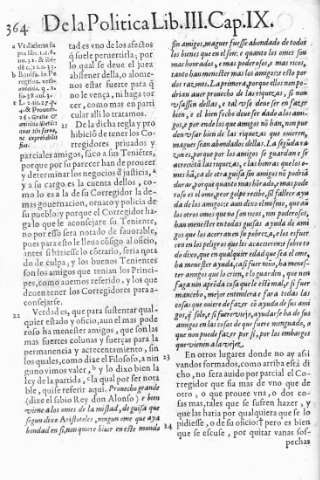 364 De la Politica Lib. III. Cap. IX.
tad es vno de los afectos
q̃ suele peruertirla; por
lo qual se deue el juez
abstener della, o alome-
nos estar fuerte para q̃
no le vença, ni haga tor
cer, como mas en parti
cular alli lo tratamos.
De la dicha regla y pro
hibiciõ de tener los Cor-
regidores priuados y
parciales amigos, saco a sus Tenientes,
porque por su parecer han de proueer
y determinar los negocios d̃ justicia, y
a su cargo es la cuenta dellos, co-
mo lo es a la de Corregidor la de-
mas gouernacion, ornato y policia de
su pueblo: y porque el Corregidor ha-
ga lo que le aconsejare su Teniente,
no por esso sera notado de fauorable,
pues para esto le lleua cõsigo al oficio,
antes si hiziesse lo cõtrario, seria nota
do de culpa, y los buenos Tenientes
son los amigos que tenian los Princi-
pes, como auemos referido, y los que
deuen tener los Corregidores para a-
consejarse.
22 Verdad es, que para sustentar qual-
quier estado y oficio, aun el mas pode
roso ha menester amigos, que son las
mas fuertes colunas y fuerças para la
permanencia y acrecentamiento, sin
los quales, como dize el Filosofo, a nin
guno vimos valer, y lo dixo bien la
ley de la partida, la qual por ser nota
ble, quise referir aqui. Prouecho grande
(dize el sabio Rey don Alonso) e bien
viene a los omes de la mistad, de guisa que
segun dixo Aristoteles, ningun ome que aya
bondad en si, non quiere biuir en este mundo
sin amigos, maguer fuesse abondado de todos
los bienes que en el son: e quanto los omes son
mas honrados, e mas poderosos, e mas ricos,
tanto han menester mas los amigos: e esto por
dos razones. La primera, porque ellos non po-
drian auer prouecho de las riquezas, si non
vsassen dellas, e tal vso deue ser en fazer
bien, e el bien fecho deue ser dado a los ami-
gos, e por ende los que amigos nõ han, non pue
den vsar bien de las riquezas que ouieren,
maguer sean abondados dellas. La segũda ra-
zon es, porque por los amigos se guardan e se
acrecẽtã las riquezas, e las honras que los o-
mes hã, ca de otra guisa sin amigos nõ podriã
durar, porque quanto mas honrado, e mas pode
roso es el ome, peor golpe recibe, si le falleciere ayu
da de los amigos: e aun dixo el mesmo, que aũ
los otros omes que no son ricos, nin poderosos,
han menester en todas guisas ayuda de ami
gos que los acorran en su pobreza, e los estuer
çan en los peligros que les acaecieren: e sobre to
do dixo, que en qualquier edad que sea el ome,
ha menester ayuda, ca si fuere niño, ha menes-
ter amigos que lo crien, e lo guarden, que non
faga nin aprenda cosa que le este mal, e si fuere
mancebo, mejor entendera e fara todas las
cosas que ouiere de fazer cõ ayuda de sus ami
gos, que solo, e si fuere viejo, ayudarse ha de sus
amigos en las cosas de que fuere menguado, o
que non puede fazer por si, por los embargos
que vienen a la vejez.
23 En otros lugares donde no ay assi
vandos formados, como arriba està di
cho, no sera auido por parcial el Cor-
regidor que fia mas de vno que de
otro, o que prouee vna, o dos co-
sas mas, tales que se sufren hazer, y
que las haria por qualquiera que se lo
pidiesse, o de su oficio: pero es bien
24 que se escuse, por quitar vanas sos-
pechas